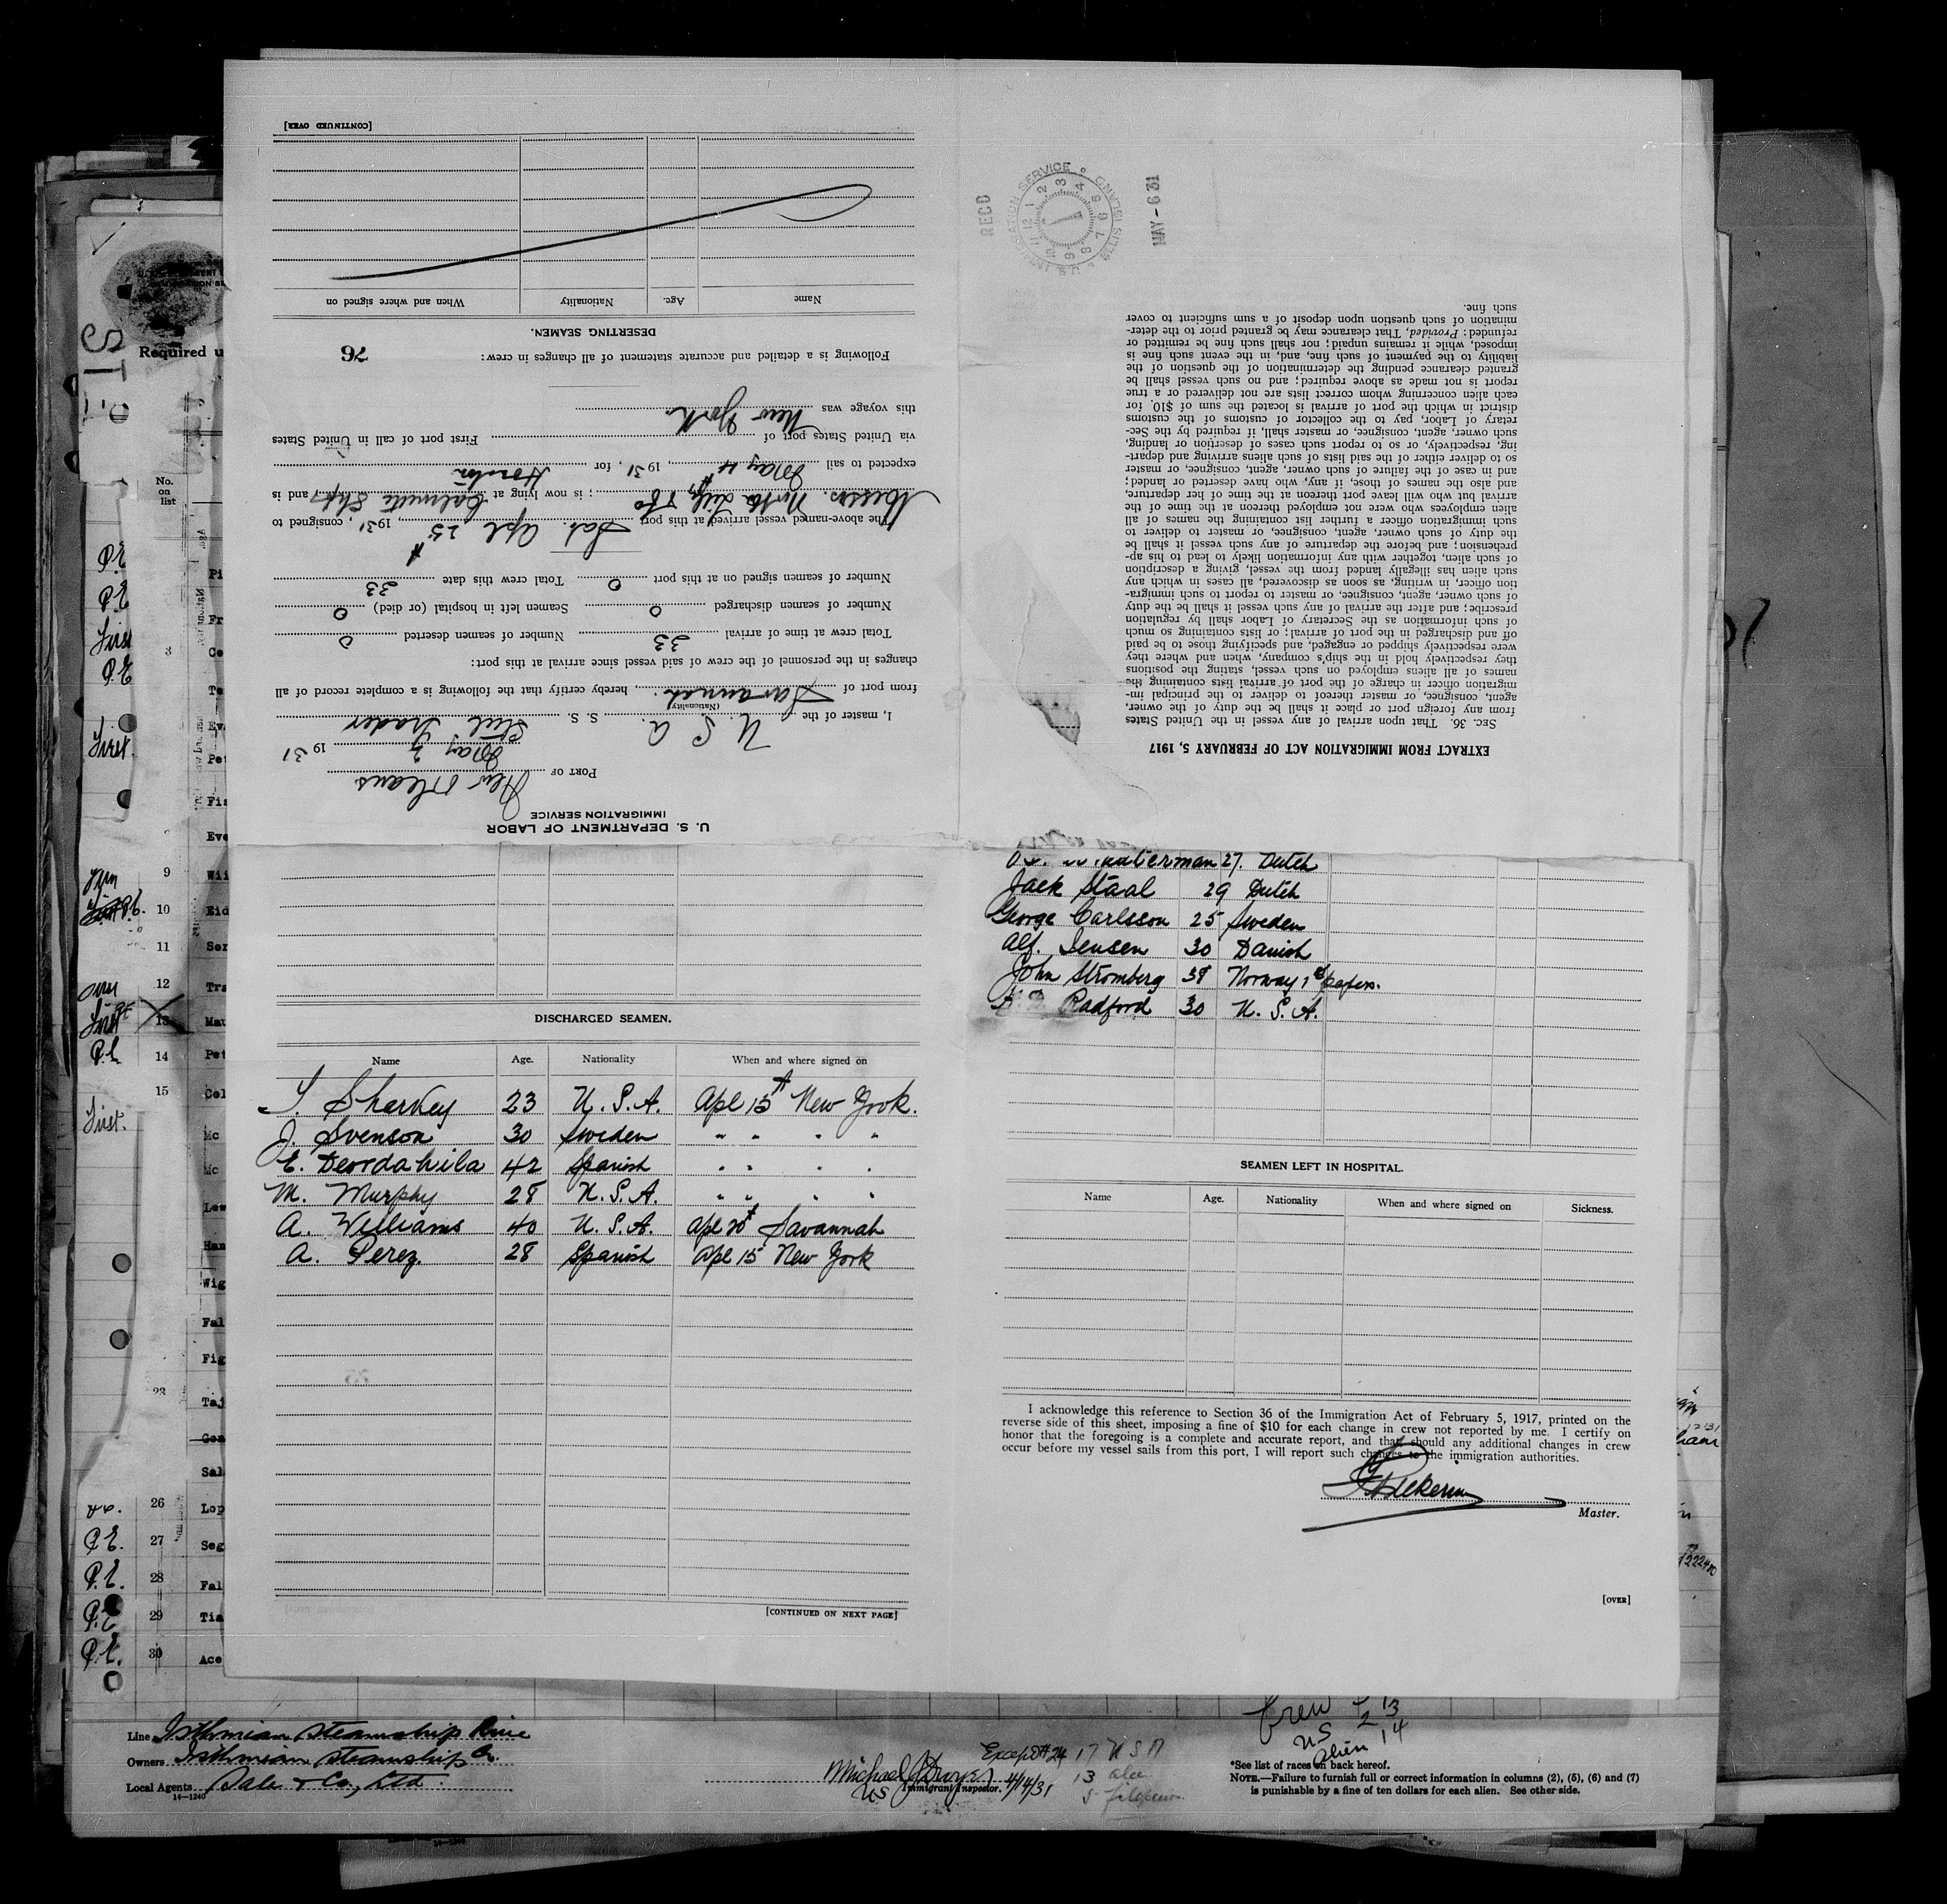 U. S. DEPARTMENT OF LABOR
IMMIGRATION SERVICE
PORT OF New Orleans
May 2 1931
I, master of the U. S. A. S. S. Steel Trader
(Nationality)
from port of Savannah, hereby certify that the following is a complete record of all
changes in the personnel of the crew of said vessel since arrival at this port:
Total crew at time of arrival 33 Number of seamen deserted 0
Number of seamen discharged 0 Seamen left in hospital (or died) 0
Number of seamen signed on at this port 0 Total crew this date 33
The above-named vessel arrived at this port Sat. Apl 25th, 1931, consigned to
Messrs. Norton Lilly & Co; is now lying at Chalmette Slip, and is
expected to sail May 4th, 1931, for Houston
via United States port of First port of call in United States
this voyage was New York
Following is a detailed and accurate statement of all changes in crew:
76
DESERTING SEAMEN.
Name Age. Nationality When and where signed on
[CONTINUED OVER]
RECD
U.S. IMMIGRATION SERVICE ELLIS ISLAND
MAY - 6 31
EXTRACT FROM IMMIGRATION ACT OF FEBRUARY 5, 1917
SEC. 36. That upon arrival of any vessel in the United States
from any foreign port or place it shall be the duty of the owner,
agent, consignee, or master thereof to deliver to the principal im-
migration officer in charge of the port of arrival lists containing the
names of all aliens employed on such vessel, stating the positions
they respectively hold in the ship's company, when and where they
were respectively shipped or engaged, and specifying those to be paid
off and discharged in the port of arrival; or lists containing so much
of such information as the Secretary of Labor shall by regulation
prescribe; and after the arrival of any such vessel it shall be the duty
of such owner, agent, consignee, or master to report to such immigra-
tion officer, in writing, as soon as discovered, all cases in which any
such alien has illegally landed from the vessel, giving a description
of such alien, together with any information likely to lead to his ap-
prehension; and before the departure of any such vessel it shall be
the duty of such owner, agent, consignee, or master to deliver to
such immigration officer a further list containing the names of all
alien employees who were not employed thereon at the time of the
arrival but who will leave port thereon at the time of her departure,
and also the names of those, if any, who have deserted or landed;
and in case of the failure of such owner, agent, consignee, or master
so to deliver either of the said lists of such aliens arriving and depart-
ing, respectively, or so to report such cases of desertion or landing,
such owner, agent, consignee, or master shall, if required by the Sec-
retary of Labor, pay to the collector of customs of the customs
district in which the port of arrival is located the sum of $10. for
each alien concerning whom correct lists are not delivered or a true
report is not made as above required; and no such vessel shall be
granted clearance pending the determination of the question of the
liability to the payment of such fine, and, in the event such fine is
imposed, while it remains unpaid; nor shall such fine be remitted or
refunded: Provided, That clearance may be granted prior to the deter-
mination of such question upon deposit of a sum sufficient to cover
such fine.
DISCHARGED SEAMEN.
Name Age. Nationality When and where signed on
Sharkey 23 U. S. A. Apl 15th New York.
J. Svenson 30 Sweden " " " "
E. Deordahila 42 Spanish " " " "
M. Murphy 28 U. S. A. " " " "
A. Williams 40 U. S. A. Apl 20th Savannah
A. Perez. 28 Spanish Apl 15 New York
[CONTINUED ON NEXT PAGE]
27. Dutch
Jack Staal 29 Dutch
George Carlsson 25 Sweden
Alf. Jensen 30 Danish
John Stromberg 38 Norway 1st papers.
Radford 30 U. S. A.
SEAMEN LEFT IN HOSPITAL.
Name Age. Nationality When and where signed on Sickness.
I acknowledge this reference to Section 36 of the Immigration Act of February 5, 1917, printed on the
reverse side of this sheet, imposing a fine of $10 for each change in crew not reported by me. I certify on
honor that the foregoing is a complete and accurate report, and that should any additional changes in crew
occur before my vessel sails from this port, I will report such changes to the immigration authorities.
Master.
[OVER]
Required u
No.
on
list
3
9 Wil
10 Eid
11 Ser
12 Tra
13 Mau
14 Pet
15 Col
Mc
Mc
Lew
Han
Wig
Fal
Fig
23
Taj
Sal
26 Lop
27 Seg
28 Fal
29 Tia
30 Ace
Line Isthmian Steamship Line
Owners Isthmian Steamship Co.
Local Agents Dale & Co., Ltd.
14—1240
Michael J Dwyer
US Immigrant Inspector. 4/14/31
Except #24 17 USA
13
5
Crew
US 2 13
Alien 14
*See list of races on back hereof.
NOTE.—Failure to furnish full or correct information in columns (2), (5), (6) and (7)
is punishable by a fine of ten dollars for each alien. See other side.